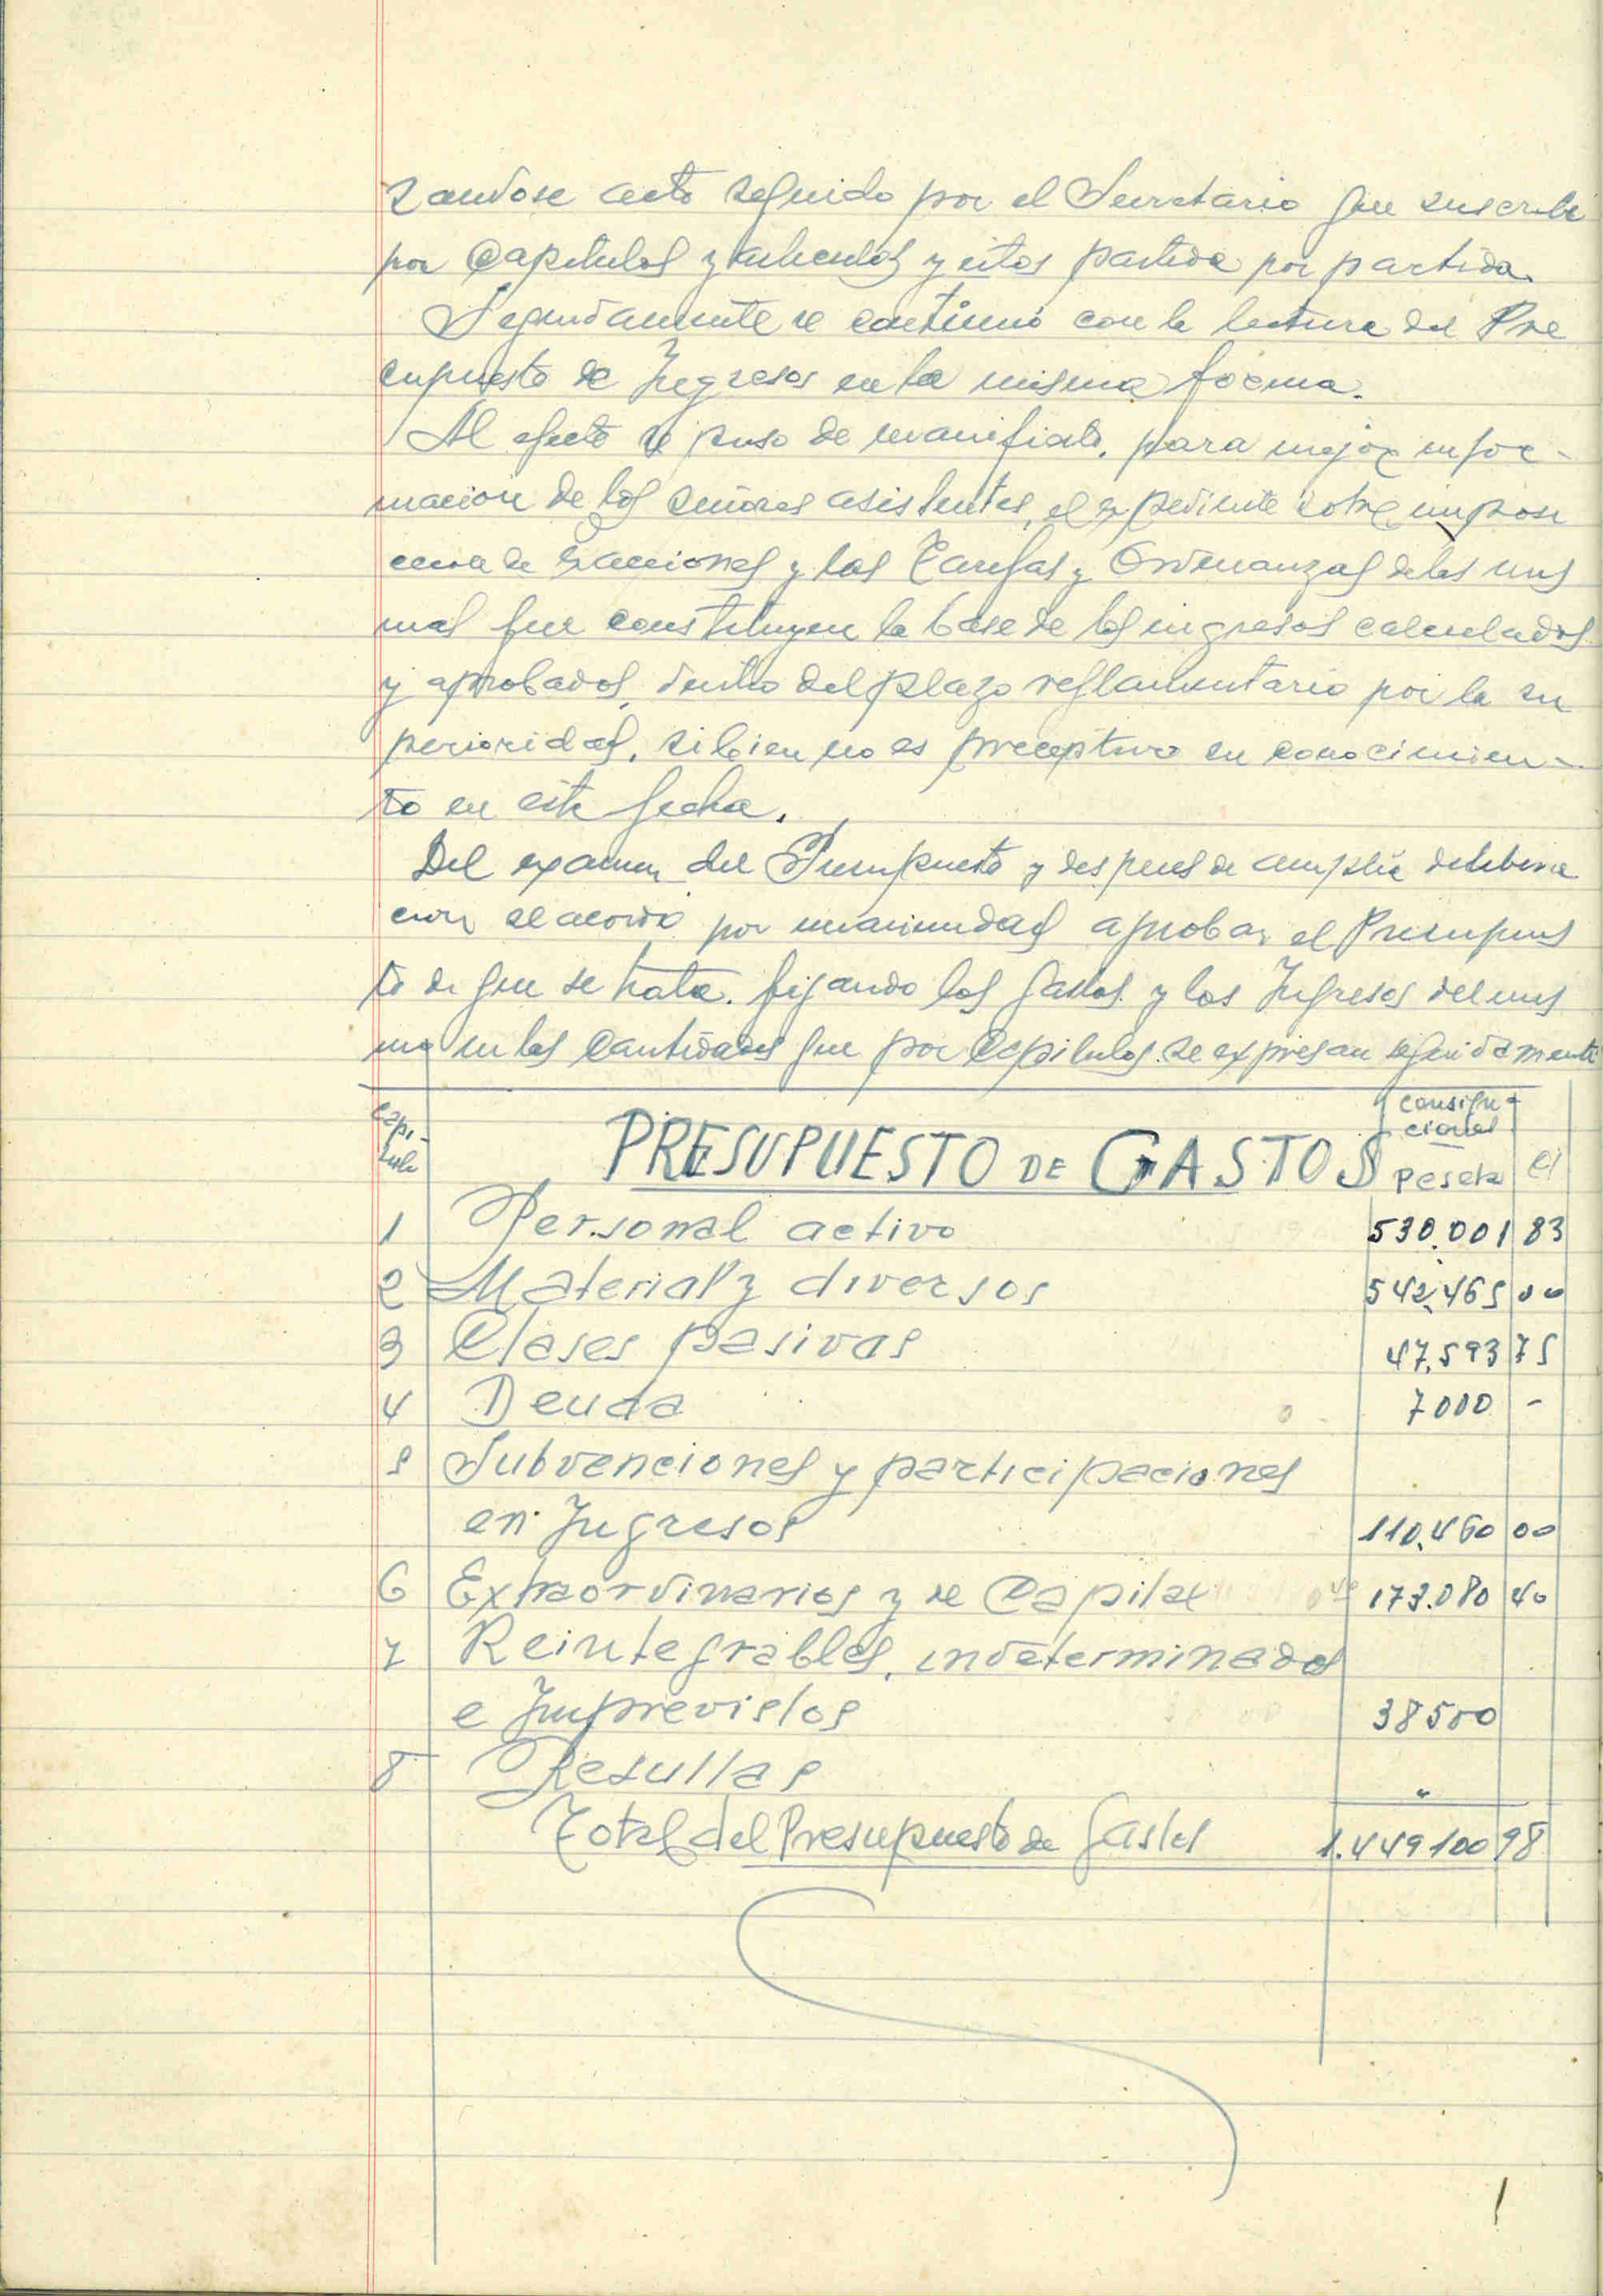 zandose acto seguido por el Secretario que suscribe
por Capitulos y articulos y estos partida por partida.
Seguidamente se continuó con la lectura del Pre
supuesto de Ingresos en la misma forma.
Al efecto se puso de manifiesto, para mejor infor-
macion de los señores asistentes, el expediente sobre imposi
cion de exacciones y las Tarifas y Ordenanzas de las mis
mas que constituyen la base de los ingresos calculados
y aprobados, dentro del plazo reglamentario por la su
perioridad, si bien no es preceptivo su conocimien-
to en esta fecha.
Del examen del Presupuesto y despues de amplia delibera
cion se acordó por unanimidad aprobar el Presupues
to de que se trata, fijando los gastos y los Ingresos del mis
mo en las Cantidades que por Capitulos se expresan seguidamente
Capi-
tulo
PRESUPUESTO DE GASTOS
Consigna-
ciones
Peseta
1 Personal activo 530.001 83
2 Material y diversos 542.465 00
3 Clases pasivas 47.593 75
4 Deuda 7000 -
5 Subvenciones y participaciones
en Ingresos 110.460 00
6 Extraordinarios y de Capital 173.080 40
7 Reintegrables, indeterminados
e Imprevistos 38500
8 Resultas "
Total del Presupuesto de Gastos 1.449100 98